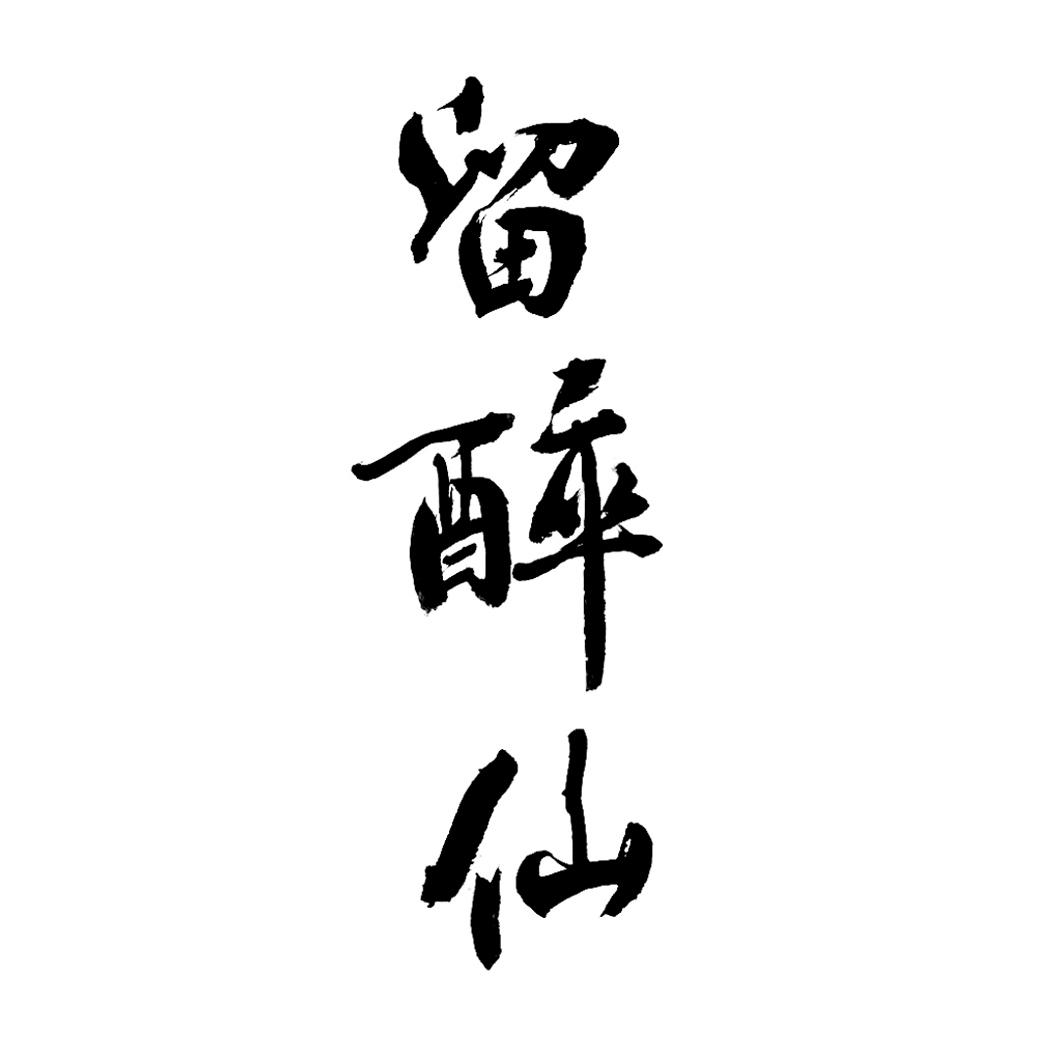 留醉仙